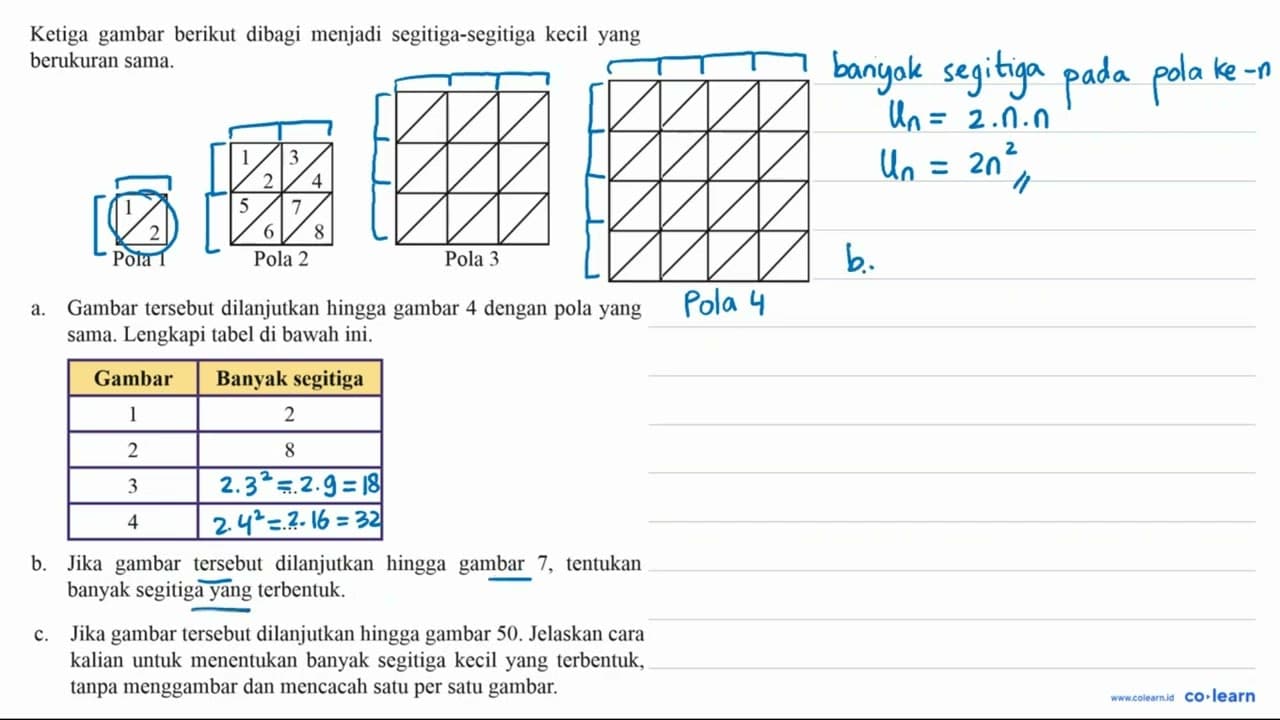 Ketiga gambar berikut dibagi menjadi segitiga-segitiga kecil yang
berukuran sama.
banyak segitiga pada pola ke-n
Un = 2.n.n
Un = 2n²
1
2
Pola 1
1 3
2 4
5 7
6 8
Pola 2
Pola 3
Pola 4
b.
a. Gambar tersebut dilanjutkan hingga gambar 4 dengan pola yang
sama. Lengkapi tabel di bawah ini.
Gambar Banyak segitiga
1 2
2 8
3 2.3² =... 2.9 = 18
4 2.4² =... 2.16 = 32
b. Jika gambar tersebut dilanjutkan hingga gambar 7, tentukan
banyak segitiga yang terbentuk.
c. Jika gambar tersebut dilanjutkan hingga gambar 50. Jelaskan cara
kalian untuk menentukan banyak segitiga kecil yang terbentuk,
tanpa menggambar dan mencacah satu per satu gambar.
www.colearn.id co·learn